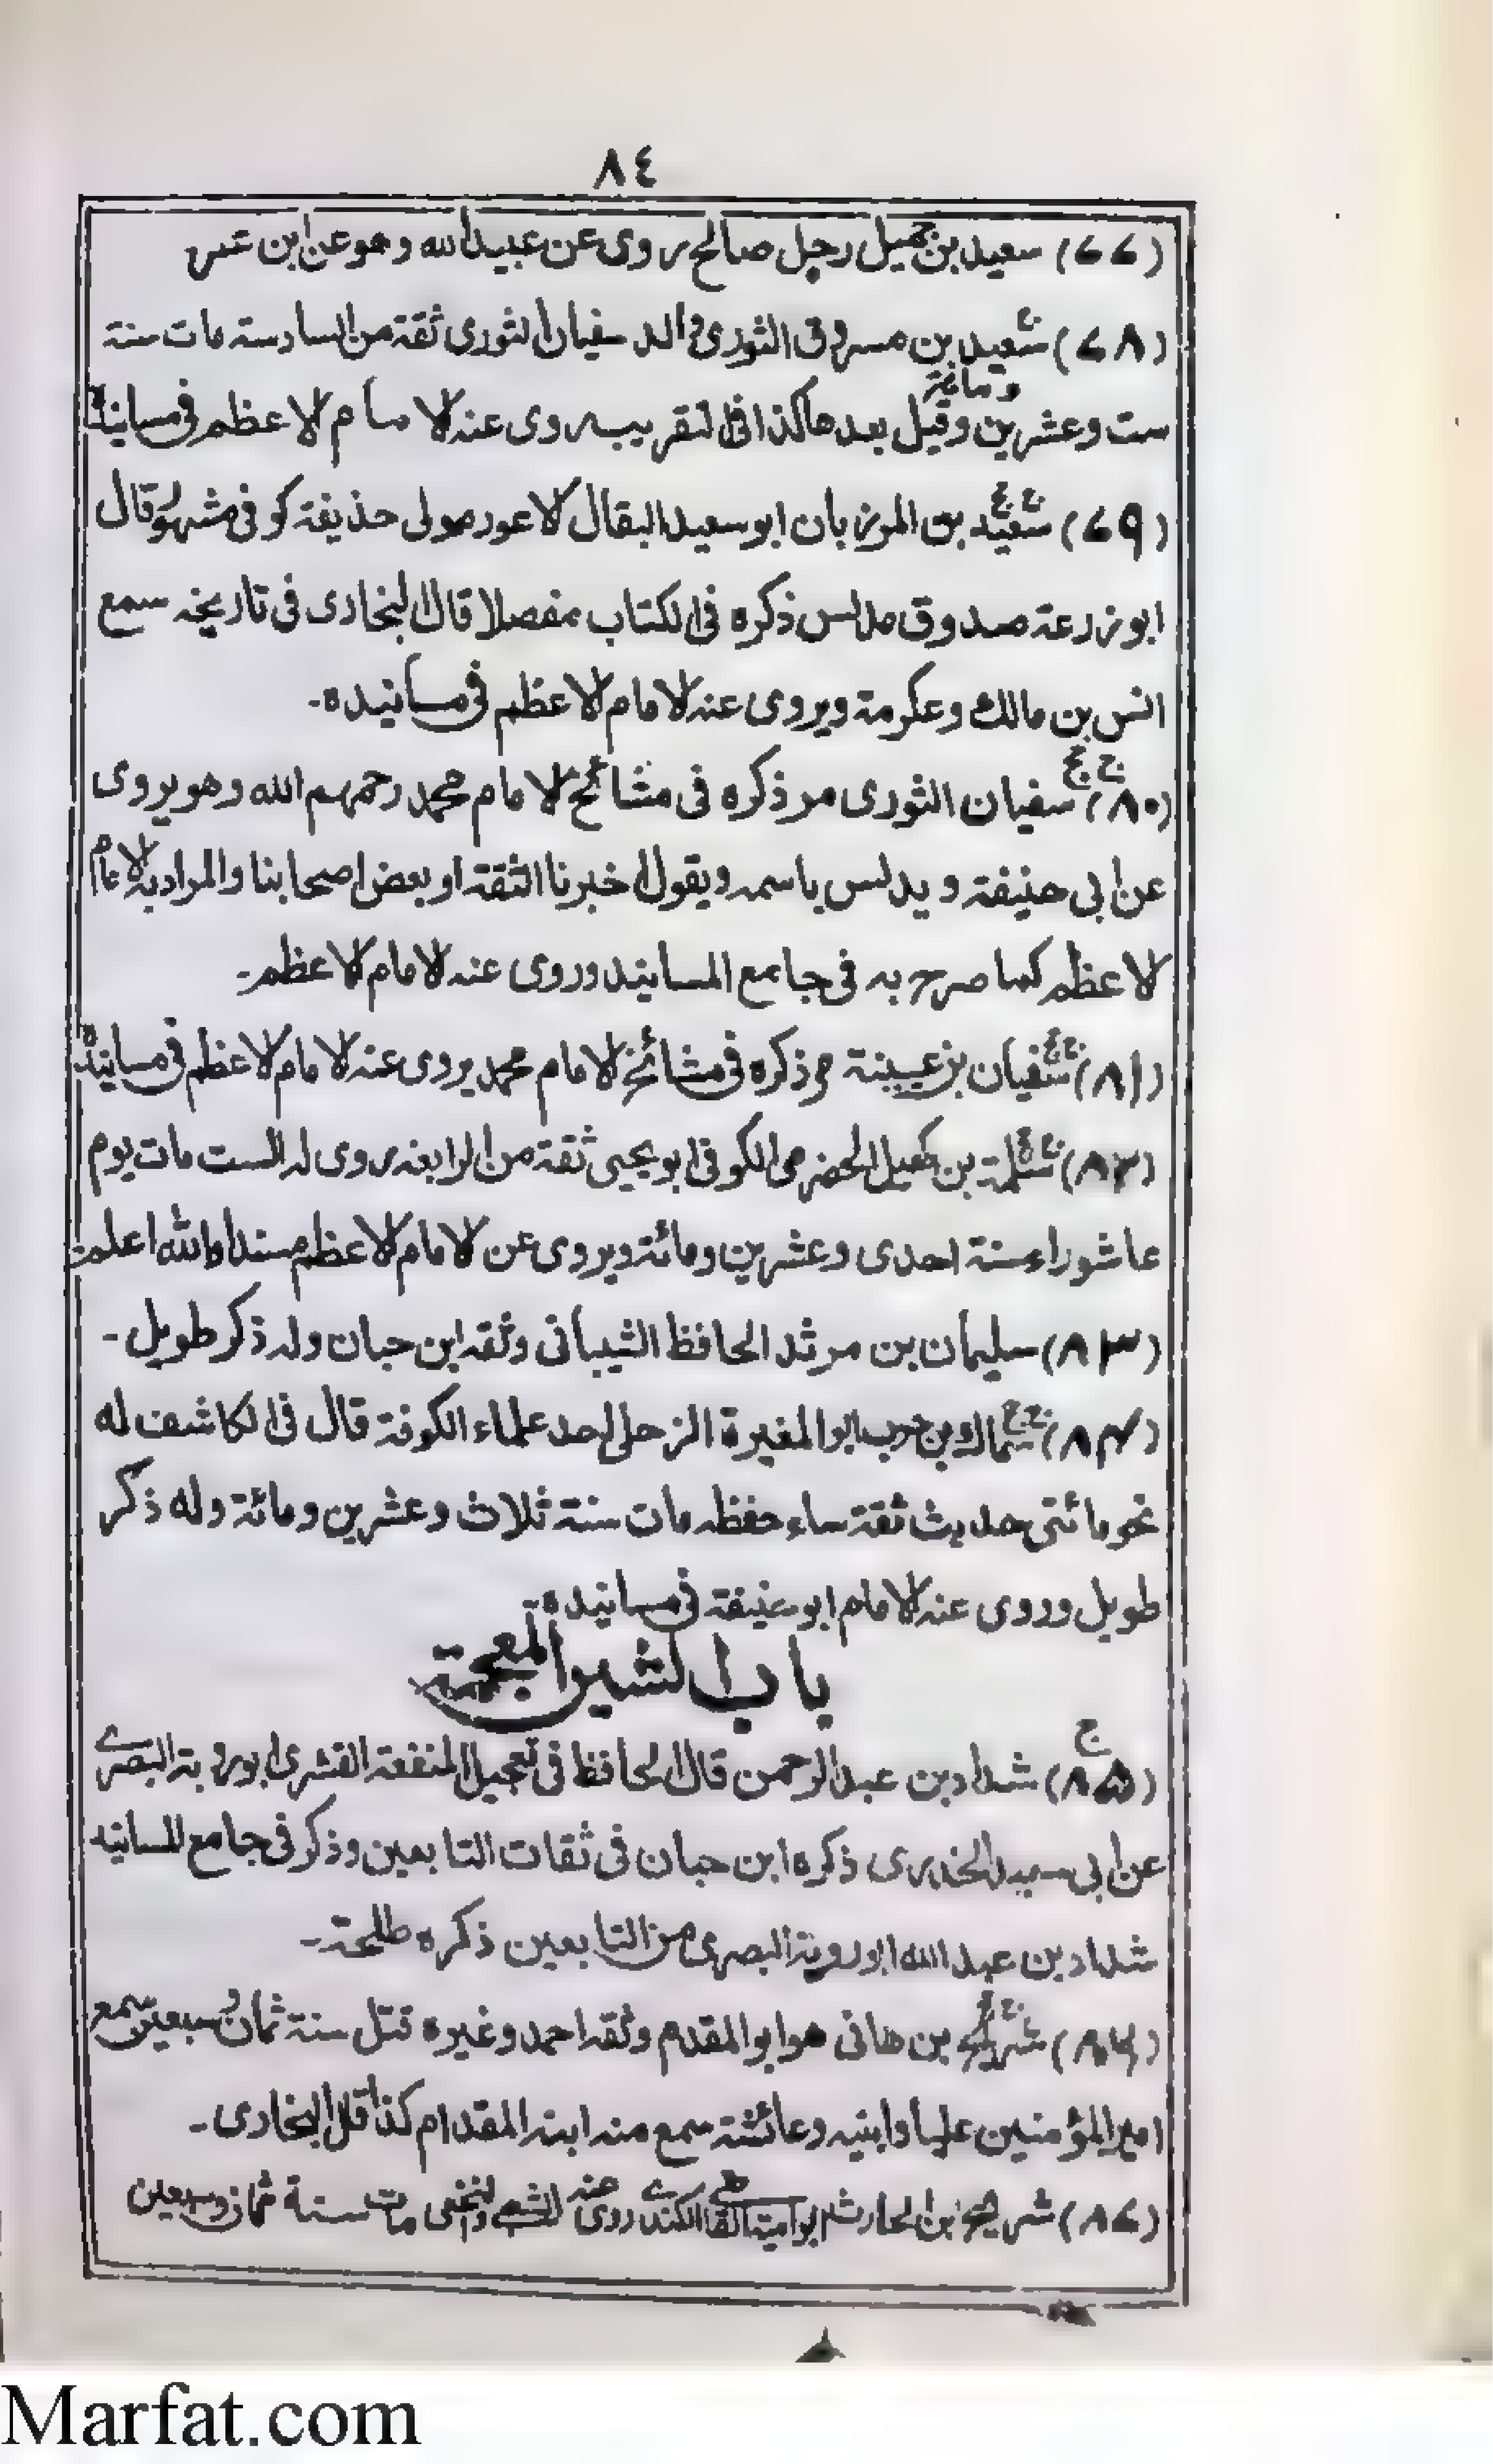 ٨٤
(٧٧) سعيد بن جميل رجل صالح روى عن عبيدالله وهو عن ابن عمر
(٧٨) سعيد بن مسروق الثوري والد سفيان الثورى ثقة من السادسة مات سنة
ومائة
ست وعشرين وقيل بعدها كذا فى التقريب روى عنه الامام الاعظم فى مسانيده
(٧٩) سعيد بن المرزبان ابو سعيد البقال الاعور مولى حذيفة كوفى مشهور قال
ابو زرعة صدوق مدلس ذكره فى الكتاب مفصلا قال البخارى فى تاريخه سمع
انس بن مالك وعكرمة ويروى عنه الامام الاعظم فى مسانيده۔
(٨٠) سفيان الثورى مر ذكره فى مشائخ الامام محمد رحمهم الله وهو يروى
عن ابى حنيفة ويدلس باسمه ويقول اخبرنا الثقة او بعض اصحابنا والمراد به الامام
الاعظم كما صرح به فى جامع المسانيد وروى عنه الامام الاعظم۔
(٨١) سفيان بن عيينة مر ذكره فى مشائخ الامام محمد يروى عنه الامام الاعظم فى مسانيده
(٨٢) سلمة بن كهيل الحضرمى الكوفى ابو يحيى ثقة من الرابعه روى له الست مات يوم
عاشوراء سنة احدى وعشرين ومائة ويروى عن الامام الاعظم مسندا والله اعلم
(٨٣) سليمان بن مرثد الحافظ الشيبانى وثقه ابن حبان وله ذكر طويل۔
(٨٤) سماك بن حرب ابو المغيرة الزحلى احد علماء الكوفة قال فى الكاشف له
نحو مائتى حديث ثقة ساء حفظه مات سنة ثلاث وعشرين ومائة وله ذكر
طويل وروى عنه الامام ابو حنيفة فى مسانيده۔
باب الشين المعجمة
(٨٥) شداد بن عبد الرحمن قال الحافظ فى تعجيل المنفعة القشرى ابو روبة البصرے
عن ابى سعيد الخدرى ذكره ابن حبان فى ثقات التابعين وذكر فى جامع المسانيد
شداد بن عبد الله ابو روية البصرى من التابعين ذكره طلحة۔
(٨٦) شريح بن هانى هو ابو المقدم وثقه احمد وغيره قتل سنة ثمان وسبعين سمع
امير المؤمنين عليا وابنيه وعائشة سمع منه ابنه المقدام كذا قال البخارى۔
(٨٧) شريح بن الحارث ابو امية القاضے الكندے روى عنه الشعبے والنخعى مات سنة ثمان وسبعين
Marfat.com